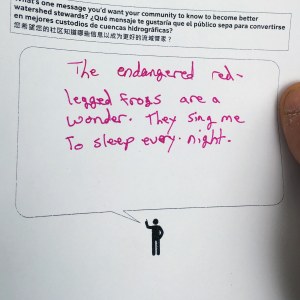 What's one message you'd want your community to know to become better
watershed stewards? ¿Qué mensaje te gustaría que el público sepa para convertirse
en mejores custodios de cuencas hidrográficas?
您希望您的社区知道哪些信息以成为更好的流域管家?
The endangered red-
legged frogs are a
wonder. They sing me
To sleep every night.